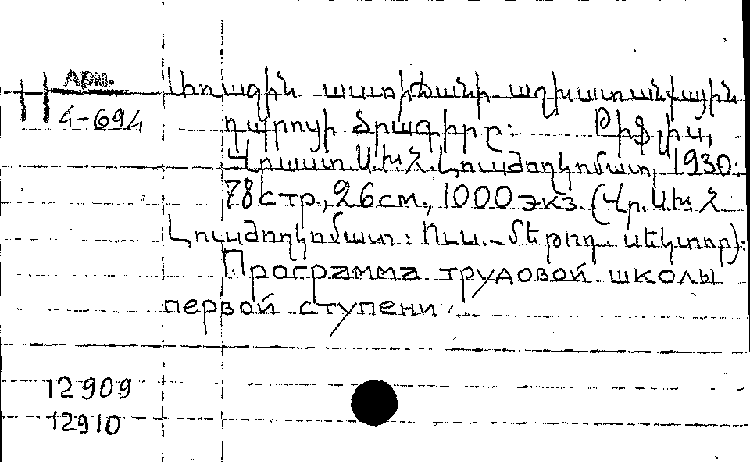 Арм.
4-694
Առաջին աստիճանի աշխատանքային
դպրոցի ծրագիրը: Թիֆլիս,
Վրաստ. Ա.Խ.Հ. Լուսժողկոմատ, 1930.
78 стр., 26 см., 1000 экз. (Վր. ԱԽՀ
Լուսժողկոմատ: Ուս.-մեթոդ. սեկտոր):
Программа трудовой школы
первой ступени.
12909
12910